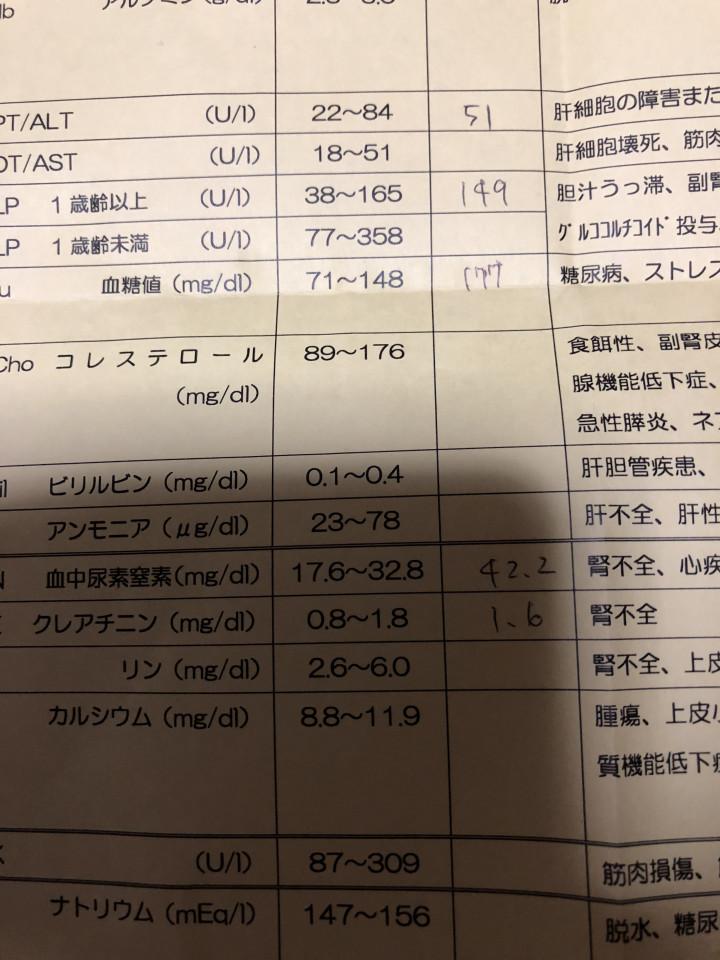 lb アルブミン(g/dl)
PT/ALT (U/l) 22～84 51 肝細胞の障害また
OT/AST (U/l) 18～51 肝細胞壊死、筋肉
LP 1歳齢以上 (U/l) 38～165 149 胆汁うっ滞、副腎
LP 1歳齢未満 (U/l) 77～358 グルココルチコイド投与、
u 血糖値 (mg/dl) 71～148 177 糖尿病、ストレス
Cho コレステロール 89～176 食餌性、副腎皮
(mg/dl) 腺機能低下症、
急性膵炎、ネフ
il ビリルビン (mg/dl) 0.1～0.4 肝胆管疾患、
アンモニア (μg/dl) 23～78 肝不全、肝性
N 血中尿素窒素(mg/dl) 17.6～32.8 42.2 腎不全、心疾
クレアチニン (mg/dl) 0.8～1.8 1.6 腎不全
リン (mg/dl) 2.6～6.0 腎不全、上皮
カルシウム (mg/dl) 8.8～11.9 腫瘍、上皮小
質機能低下症
K (U/l) 87～309 筋肉損傷、
ナトリウム (mEq/l) 147～156 脱水、糖尿